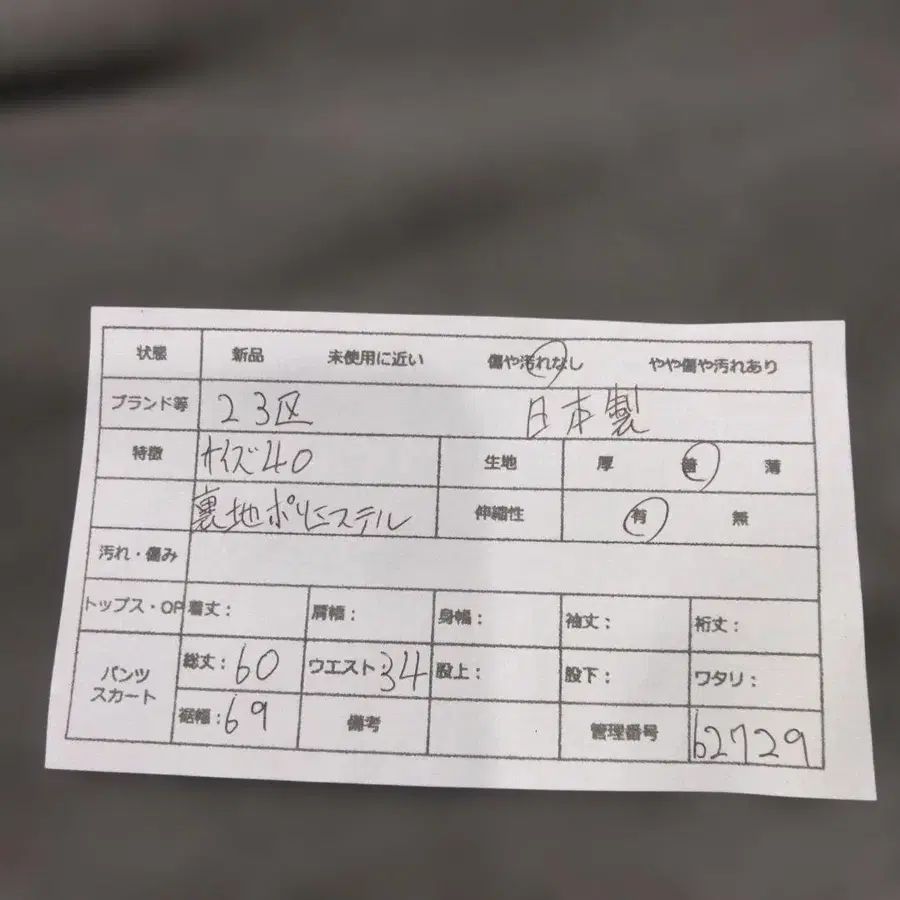 状態 新品 未使用に近い 傷や汚れなし やや傷や汚れあり
ブランド等 23区 日本製
特徴 サイズ40 生地 厚 普 薄
裏地ポリエステル 伸縮性 有 無
汚れ・傷み
トップス・OP 着丈： 肩幅： 身幅： 袖丈： 裄丈：
パンツ スカート 総丈：60 ウエスト34 股上： 股下： ワタリ：
裾幅：69 備考 管理番号 62729